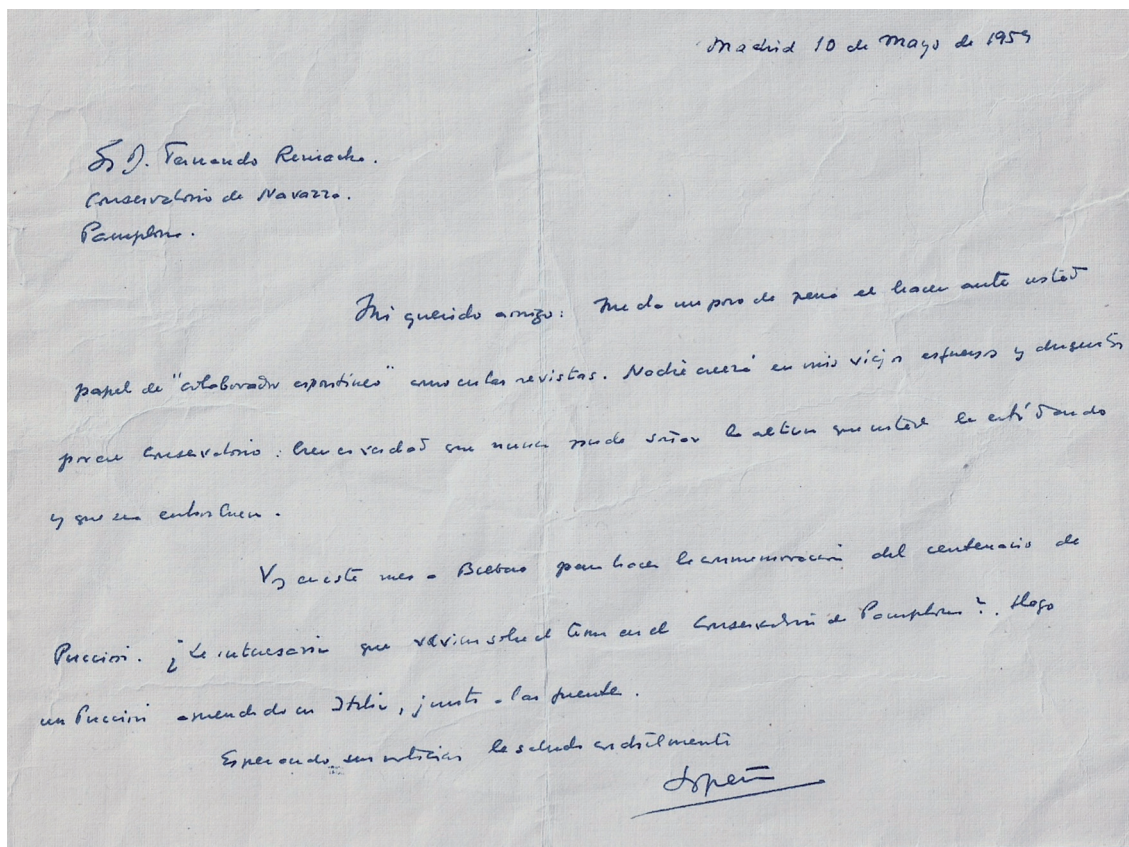 Madrid 10 de Mayo de 1959
Sr D. Fernando Remacha.
Conservatorio de Navarra.
Pamplona.
Mi querido amigo: Me da un poco de pena el hacer ante usted
papel de "colaborador espontáneo" como en las revistas. Nadie creerá en mis viejos esfuerzos y disgustos
por ese Conservatorio: bien es verdad que nunca pude soñar la altura que usted le está dando
y que sea enhorabuena.
Voy en este mes a Bilbao para hacer la conmemoración del centenario de
Puccini. ¿Le interesaría que sobre el tema en el Conservatorio de Pamplona?. Hago
un Puccini aprendido en Italia, junto a las fuentes.
Esperando sus noticias le saludo cordialmente
Sopeña